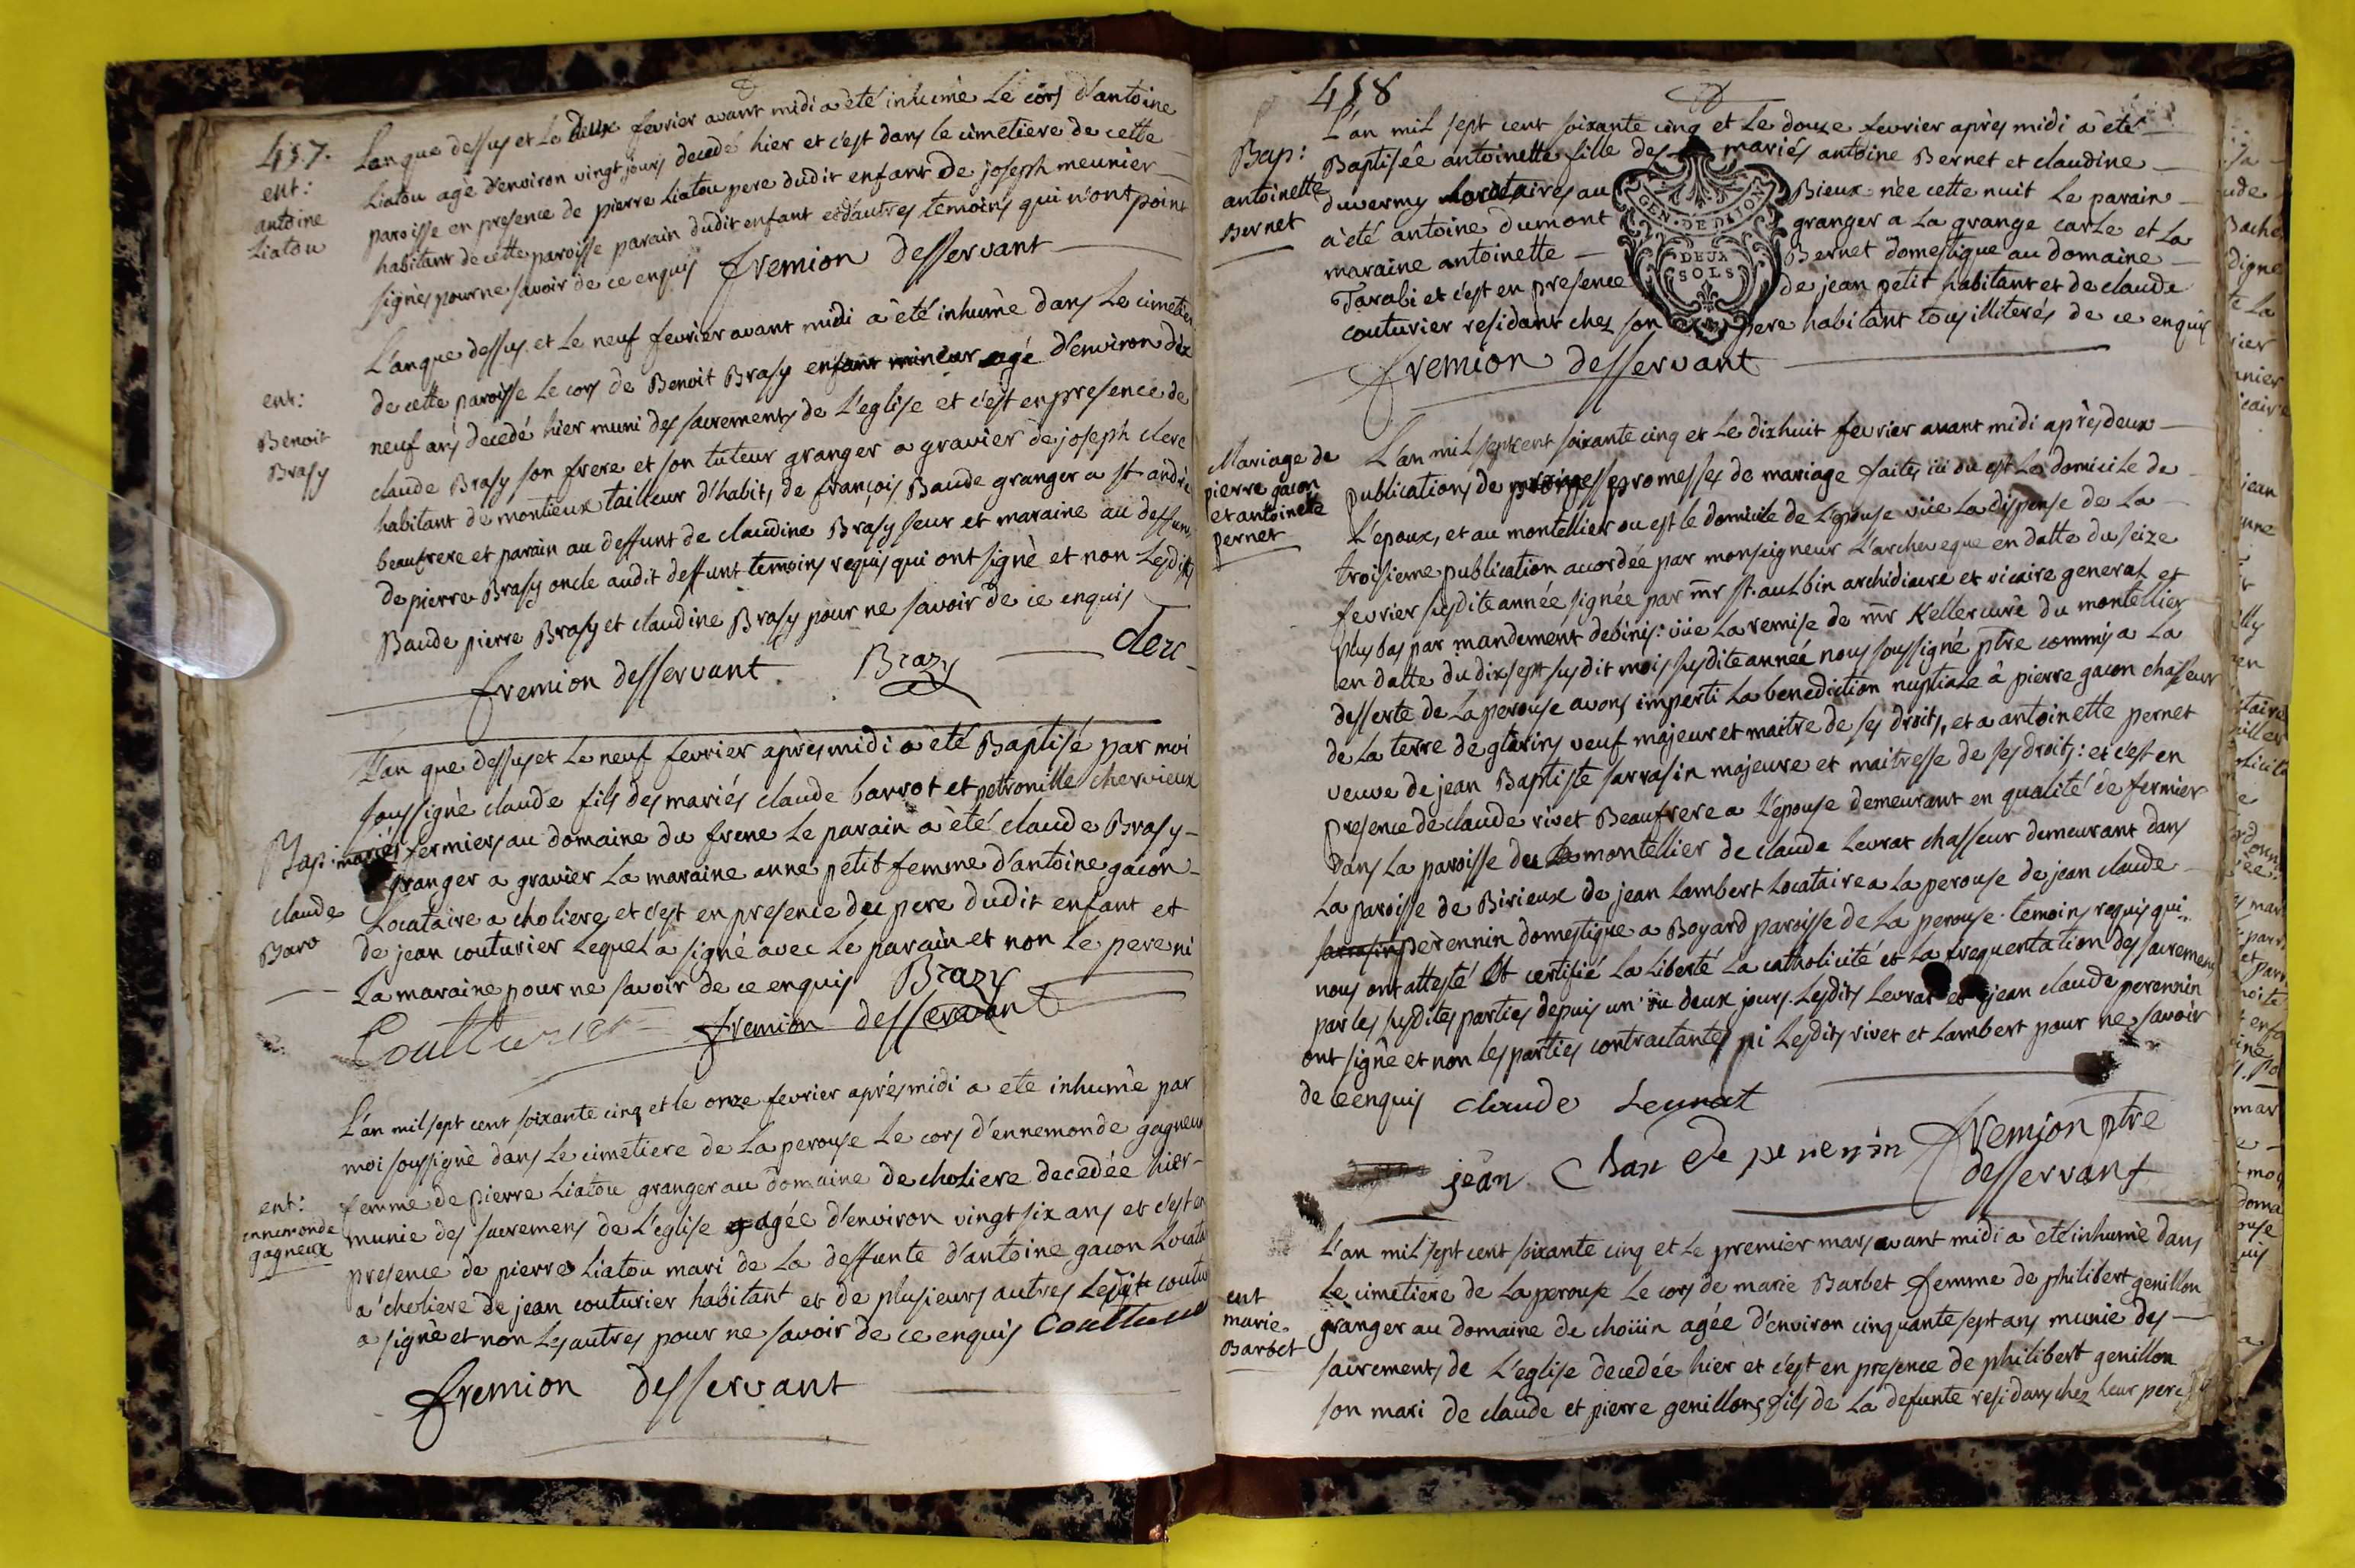 457.
L'an que dessus et le deux fevrier avant midi a été inhumè Le cors d'antoine
ent:
antoine
Liatou
Liatou agè d'environ vingt jours decedé hier et c'est dans le cimetiere de cette
paroisse en presence de pierre Liatou pere dudit enfant de joseph meunier
habitant de cette paroisse parain dudit enfant et d'autres temoins qui n'ont point
signès pour ne savoir de ce enquis fremion desservant
L'an que dessus et Le neuf fevrier avant midi à été inhumè dans Le cimetie
ent:
Benoit
Brasy
de cette paroisse Le cors de Benoit Brasy enfant mineur agé d'environ dix
neuf ans decedé hier muni des sacrements de L'eglise et c'est en presence de
claude Brasy son frere et son tuteur granger a gravier de joseph clerc
habitant de montieux tailleur d'habits, de françois Baude granger a st andrè
beaufrere et parain au deffunt de claudine Brasy seur et maraine au deffun
de pierre Brasy oncle audit deffunt temoins requis qui ont signè et non Lesdits
Baude pierre Brasy et claudine Brasy pour ne savoir de ce enquis
fremion desservant Brazy clerc
L'an que dessus et Le neuf fevrier après midi a été Baptisé par moi
soussignè claude fils des mariés claude barrot et petronille chervieux
Bap:
claude
Baro
mariés fermiers au domaine du frene Le parain a été claude Brasy
granger a gravier La maraine anne petit femme d'antoine gacon
Locataire a choliere et c'est en presence du pere dudit enfant et
de jean couturier Lequel a signé avec Le parain et non Le pere ni
La maraine pour ne savoir de ce enquis Brazy
Coutturier fremion desservant
L'an mil sept cent soixante cinq et le onze fevrier après midi a ete inhumè par
moi soussignè dans Le cimetiere de La perouse Le cors d'ennemonde gagneux
ent:
ennemonde
gagneux
femme de pierre Liatou granger au domaine de choliere decedée hier
munie des sacremens de L'eglise agée d'environ vingt six ans et c'est en
presence de pierre Liatou mari de La deffunte d'antoine gacon Locata
a choliere de jean couturier habitant et de plusieurs autres Ledit coutu
a signè et non Les autres pour ne savoir de ce enquis Coutturie
fremion desservant
458
L'an mil sept cent soixante cinq et Le douze fevrier après midi a été
Bap:
antoinette
Bernet
Baptisée antoinette fille des mariés antoine Bernet et claudine
duvermy Locataires au Bieux née cette nuit Le parain
à été antoine dumont granger a La grange carle et La
maraine antoinette Bernet domestique au domaine
Tarabi et c'est en presence de jean petit habitant et de claude
couturier residant chez son pere habitant tous illiterés de ce enquis
GEN. DE DIJON
DEUX
SOLS
fremion desservant
Mariage de
pierre gacon
et antoinette
pernet
L'an mil sept cent soixante cinq et Le dixhuit fevrier avant midi après deux
publications de promesses de mariage faites ici ou est Le domicile de
L'epoux, et au montellier ou est le domicile de L'epouse vüe La dispense de La
troisieme publication accordée par monseigneur L'archeveque en datte du seize
fevrier susdite année signée par mr st. aulbin archidiacre et vicaire general et
plus bas par mandement debinis: vüe La remise de mr Keller curè du montellier
en datte du dixsept susdit mois susdite année nous soussigné ptre commis a La
desserte de La perouse avons imparti La benediction nuptiale à pierre gacon chasseur
de La terre de glareins veuf majeur et maitre de ses droits, et a antoinette pernet
veuve de jean Baptiste sarrasin majeure et maitresse de ses droits: et c'est en
presence de claude rivet Beaufrere a L'epouse demeurant en qualité de fermier
dans La paroisse du montellier de claude Levrat chasseur demeurant dans
La paroisse de Birieux de jean Lambert Locataire a La perouse de jean claude
perennin domestique a Boyard paroisse de La perouse temoins requis qui
nous ont attesté et certifié La Liberté La catholicité et La frequentation des sacremens
par les susdites parties depuis un ou deux jours. Lesdits Levrat et jean claude perennin
ont signè et non les parties contractantes ni Lesdits rivet et Lambert pour ne savoir
de ce enquis claude Leurat
jean Claude perennin fremion ptre
desservant
L'an mil sept cent soixante cinq et Le premier mars avant midi à été inhumè dans
ent
marie
Barbet
Le cimetiere de La perouse Le cors de marie Barbet femme de philibert genillon
granger au domaine de choiïin agée d'environ cinquante sept ans munie des
sacrements de L'eglise decedée hier et c'est en presence de philibert genillon
son mari de claude et pierre genillons fils de La defunte residans chez leur pere